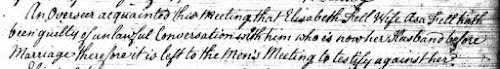 An Overseer acquainted this meeting that Elisabeth Fell Wife Asa Fell hath
been guilty of unlawful Conversation with him who is now her Husband before
Marriage therefore it is left to the Men's Meeting to testify against her